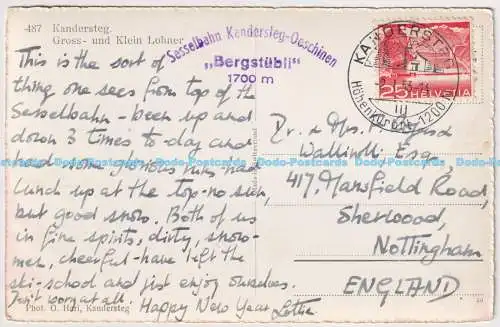 487 Kandersteg.
Gross- und Klein Lohner
Sesselbahn Kandersteg-Oeschinen
„Bergstübli"
1700 m
This is the sort of
thing one sees from top of the
Sesselbahn - been up and
down 3 times to-day and
had some glorious runs - had
lunch up at the top - no sun,
but good snow. Both of us
in fine spirits, dirty, snow-
men, cheerful - have left the
ski-school and just enjoy ourselves.
Don't worry at all. Happy New Year Lottie
Phot. O. Hari, Kandersteg
KANDERSTEG
Höhenkurort 1200
25 HELVETIA
Dr. & Mrs.
Wallindi Esq.,
417, Mansfield Road,
Sherwood,
Nottingham
ENGLAND
Dodo-Postcards Dodo-Postcards Dodo-Postcards Dodo-Postcards